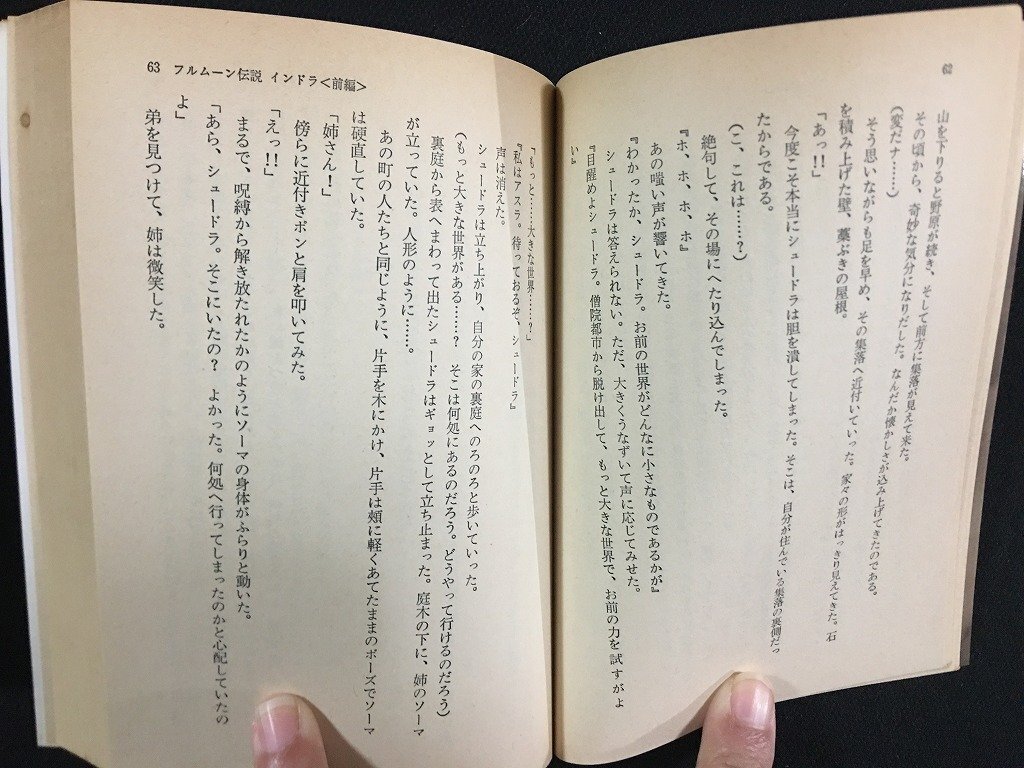 62
山を下りると野原が続き、そして前方に集落が見えて来た。
その頃から、奇妙な気分になりだした。なんだか懐かしさが込み上げてきたのである。
(変だナ……)
そう思いながらも足を早め、その集落へ近付いていった。家々の形がはっきり見えてきた。石
を積み上げた壁、藁ぶきの屋根。
「あっ!!」
今度こそ本当にシュードラは胆を潰してしまった。そこは、自分が住んでいる集落の裏側だっ
たからである。
(こ、これは……?)
絶句して、その場にへたり込んでしまった。
『ホ、ホ、ホ、ホ』
あの嗤い声が響いてきた。
『わかったか、シュードラ。お前の世界がどんなに小さなものであるかが』
シュードラは答えられない。ただ、大きくうなずいて声に応じてみせた。
『目醒めよシュードラ。僧院都市から脱け出して、もっと大きな世界で、お前の力を試すがよ
い』
「もっと……大きな世界……?」
『私はアスラ。待っておるぞ、シュードラ』
声は消えた。
シュードラは立ち上がり、自分の家の裏庭へのろのろと歩いていった。
(もっと大きな世界がある……? そこは何処にあるのだろう。どうやって行けるのだろう)
裏庭から表へまわって出たシュードラはギョッとして立ち止まった。庭木の下に、姉のソーマ
が立っていた。人形のように……。
あの町の人たちと同じように、片手を木にかけ、片手は頰に軽くあてたままのポーズでソーマ
は硬直していた。
「姉さん!」
傍らに近付きポンと肩を叩いてみた。
「えっ!!」
まるで、呪縛から解き放たれたかのようにソーマの身体がふらりと動いた。
「あら、シュードラ。そこにいたの? よかった。何処へ行ってしまったのかと心配していたの
よ」
弟を見つけて、姉は微笑した。
63 フルムーン伝説 インドラ<前編>